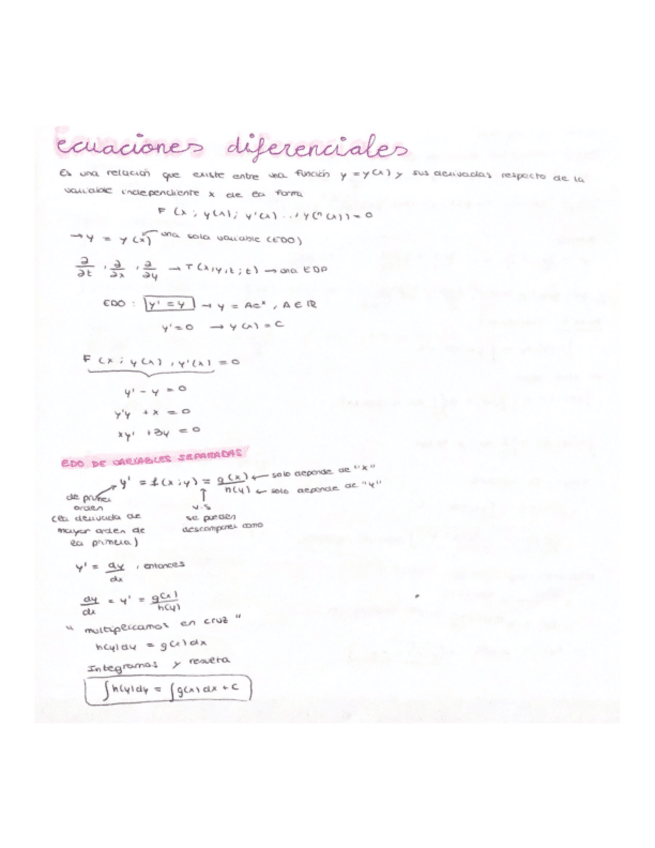 Ecuaciones diferenciales
Es una relación que existe entre una función y = y(x) y sus derivadas respecto de la
variable independiente x de la forma
F (x ; y(x) ; y'(x) ... ; y(ⁿ(x)) = 0
→ y = y(x) una sola variable (EDO)
∂/∂t , ∂/∂x , ∂/∂y → T(x,y,t ; t) → una EDP
EDO : y' = y → y = Aeˣ , A ∈ ℝ
y' = 0 → y(x) = C
F (x ; y(x) , y'(x)) = 0
y' - y = 0
y'y + x = 0
xy' + 3y = 0
EDO DE VARIABLES SEPARADAS
y' = f(x ; y) = g(x)/h(y) ← solo depende de "x"
← solo depende de "y"
de primer
orden
(la derivada de
mayor orden de
la primera)
v.s
se pueden
descomponer como
y' = dy/dx , entonces
dy/dx = y' = g(x)/h(y)
" multiplicamos en cruz "
h(y)dy = g(x)dx
Integramos y resulta
∫h(y)dy = ∫g(x)dx + C